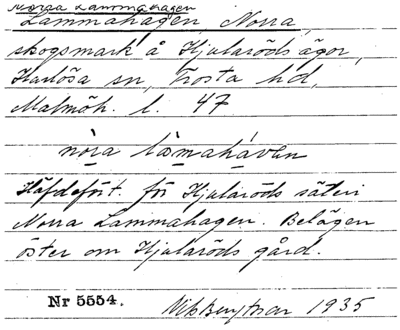 Norra Lammahagen
Lammahagen, Norra,
skogsmark å Hjularöds ägor,
Harlösa sn, Frosta hd,
Malmöh. l. 47
nora lamahaven
Häfdeört. för Hjularöds säteri
Norra Lammahagen. Belägen
öster om Hjularöds gård.
Nr 5554. Nils Bengtsson 1935